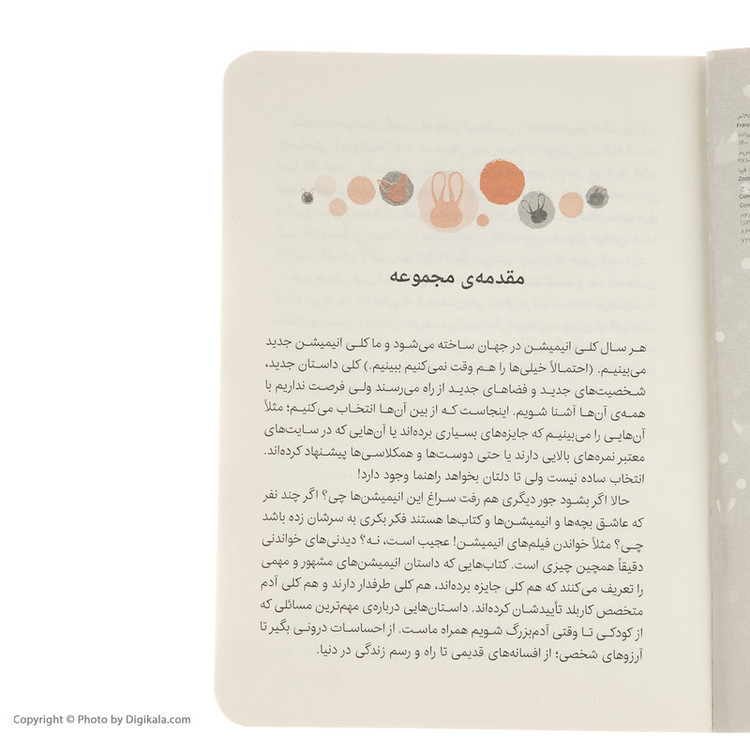 مقدمه‌ی مجموعه
هر سال کلی انیمیشن در جهان ساخته می‌شود و ما کلی انیمیشن جدید
می‌بینیم. (احتمالاً خیلی‌ها را هم وقت نمی‌کنیم ببینیم.) کلی داستان جدید،
شخصیت‌های جدید و فضاهای جدید از راه می‌رسند ولی فرصت نداریم با
همه‌ی آن‌ها آشنا شویم. اینجاست که از بین آن‌ها انتخاب می‌کنیم؛ مثلاً
آن‌هایی را می‌بینیم که جایزه‌های بسیاری برده‌اند یا آن‌هایی که در سایت‌های
معتبر نمره‌های بالایی دارند یا حتی دوست‌ها و همکلاسی‌ها پیشنهاد کرده‌اند.
انتخاب ساده نیست ولی تا دلتان بخواهد راهنما وجود دارد!
حالا اگر بشود جور دیگری هم رفت سراغ این انیمیشن‌ها چی؟ اگر چند نفر
که عاشق بچه‌ها و انیمیشن‌ها و کتاب‌ها هستند فکر بکری به سرشان زده باشد
چی؟ مثلاً خواندن فیلم‌های انیمیشن! عجیب است، نه؟ دیدنی‌های خواندنی
دقیقاً همچین چیزی است. کتاب‌هایی که داستان انیمیشن‌های مشهور و مهمی
را تعریف می‌کنند که هم کلی جایزه برده‌اند، هم کلی طرفدار دارند و هم کلی آدم
متخصص کاربلد تأییدشان کرده‌اند. داستان‌هایی درباره‌ی مهم‌ترین مسائلی که
از کودکی تا وقتی آدم‌بزرگ شویم همراه ماست. از احساسات درونی بگیر تا
آرزوهای شخصی؛ از افسانه‌های قدیمی تا راه و رسم زندگی در دنیا.
Copyright © Photo by Digikala.com